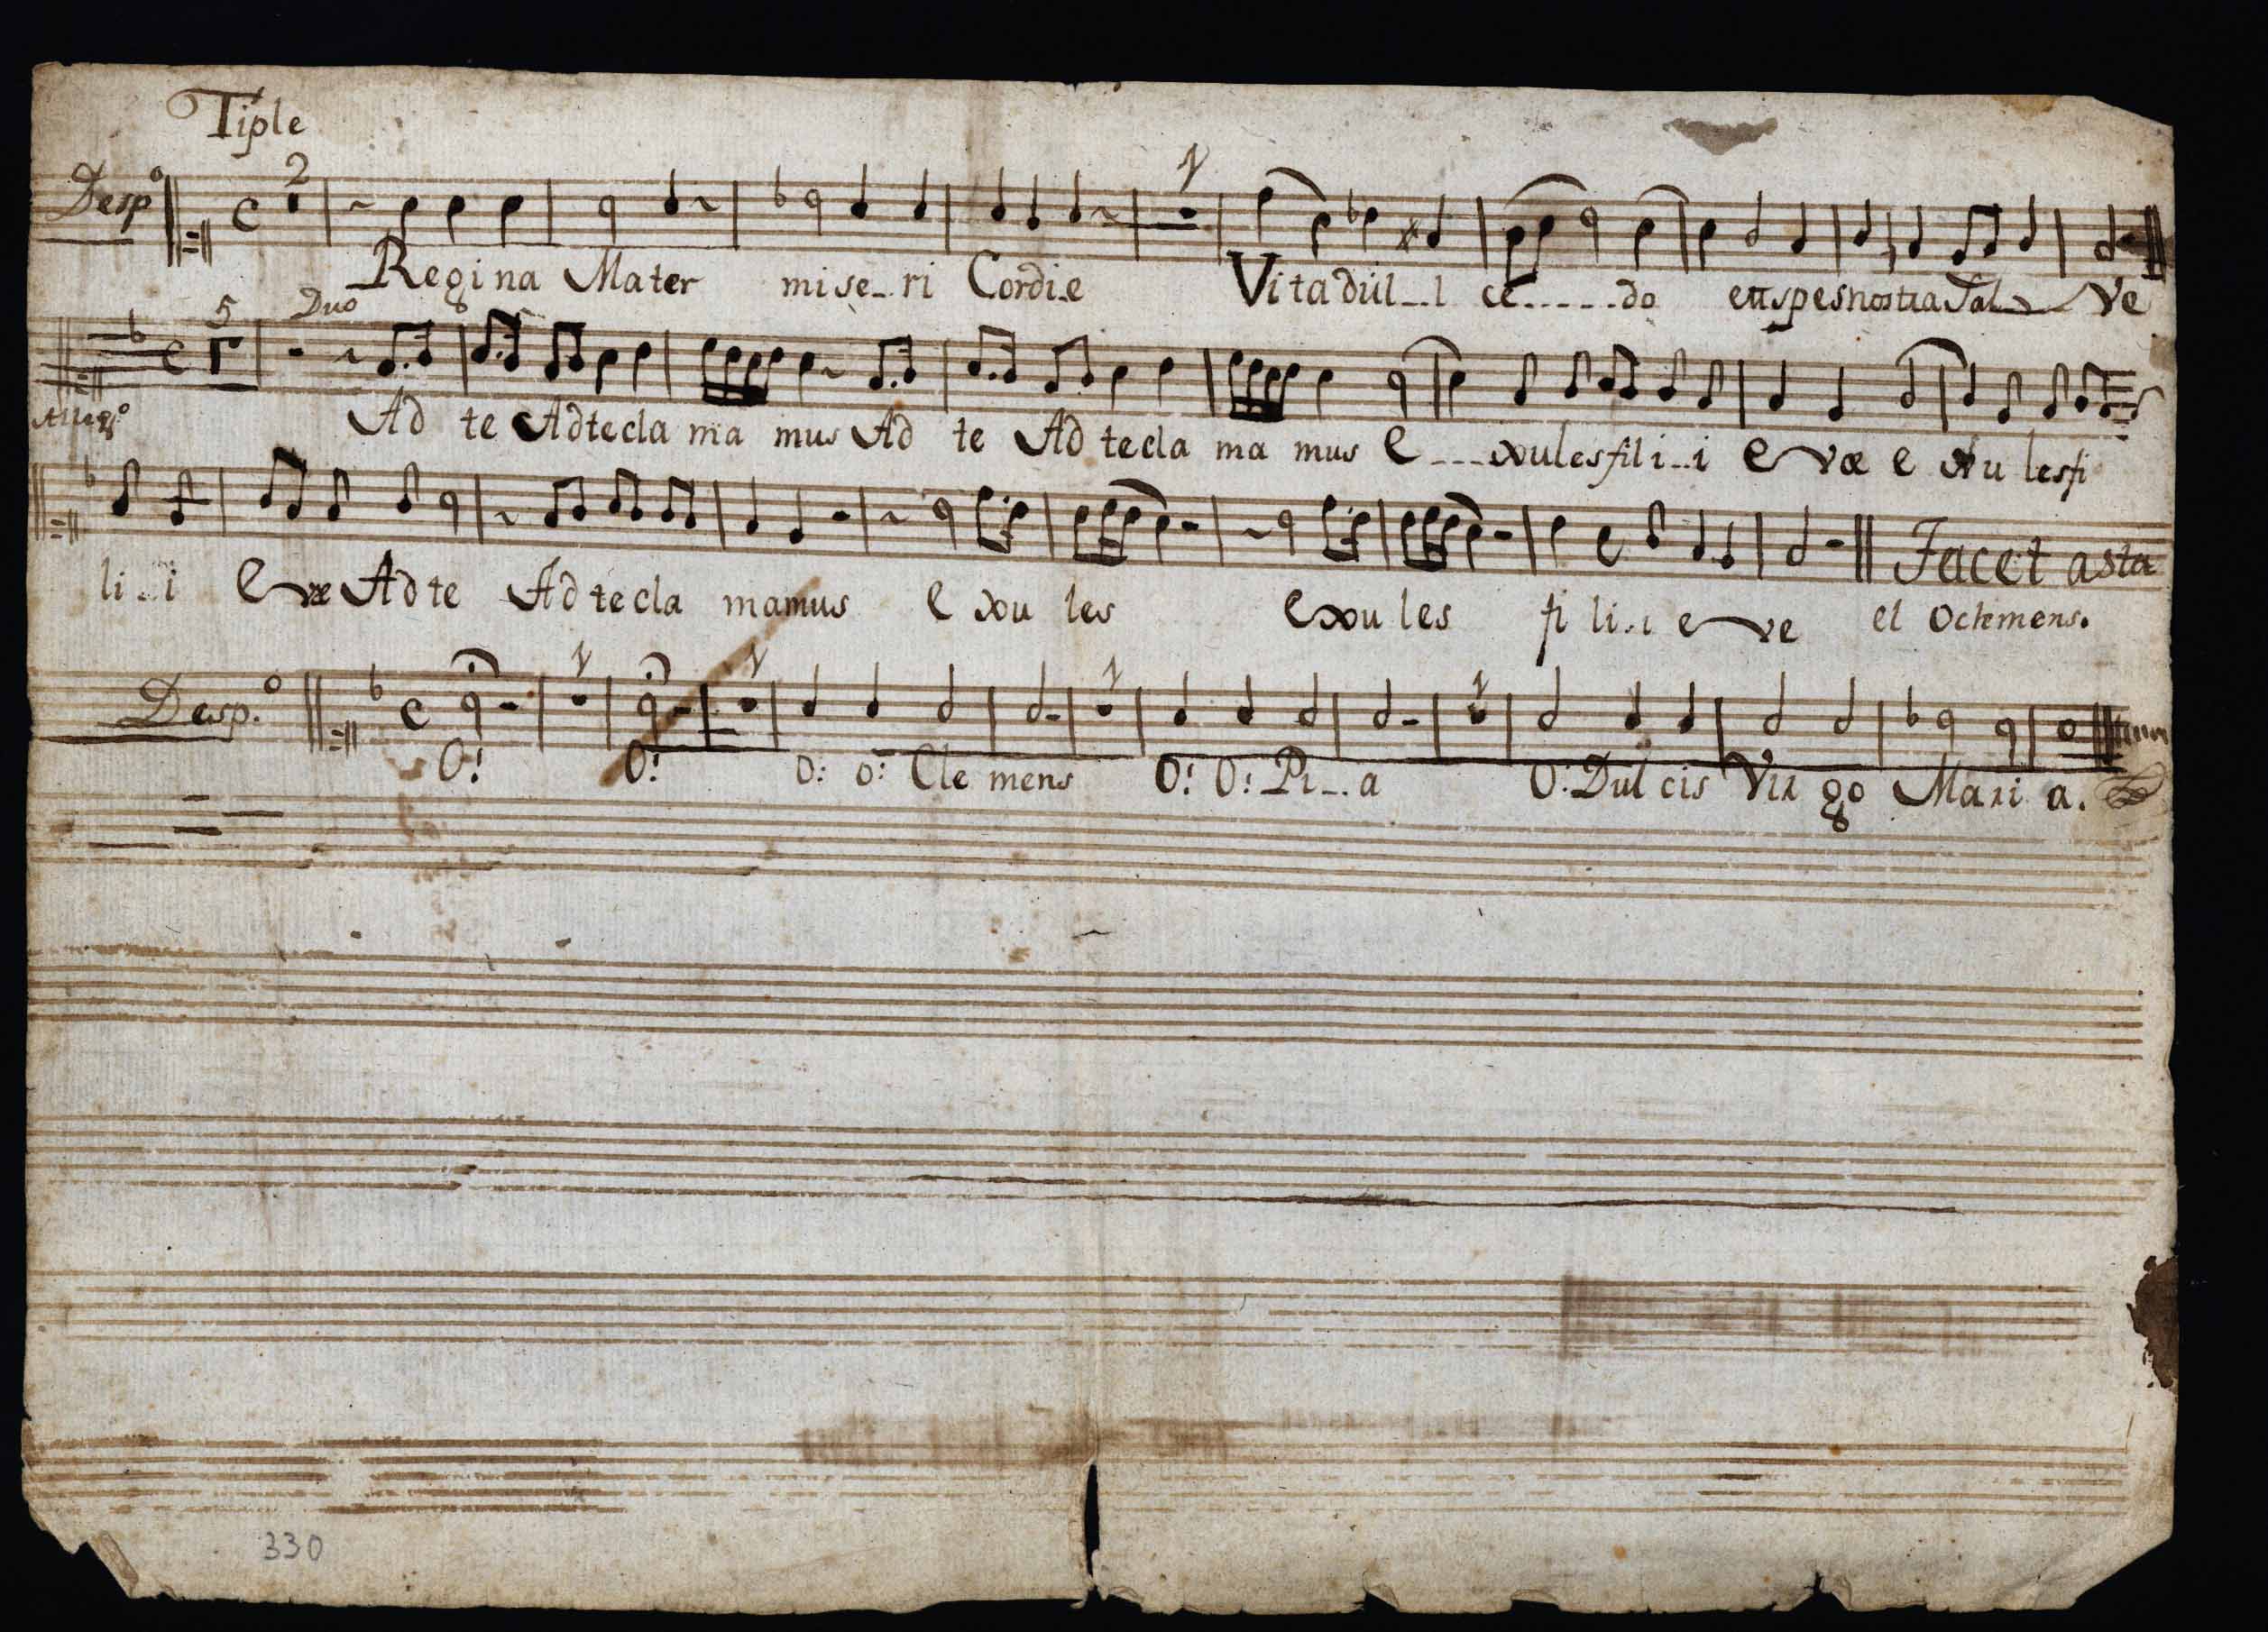 Tiple
Desp.º 2 1
Regina Mater mise_ri Cordi_e Vita dul__l ce_____do euspes nostra Sal ve
5 Duo
Alleg.º
Ad te Ad te cla ma mus Ad te Ad te cla ma mus e ___xules fili_i e væ e xu les fi
li_i e væ Ad te Ad te cla mamus e xu les exu les fi li_i e ve
Tacet asta el O clemens.
Desp.º 1 1 1 1
O! O! O: O: Cle mens O! O! Pi_a O: Dul cis Vir go Mari a.
330